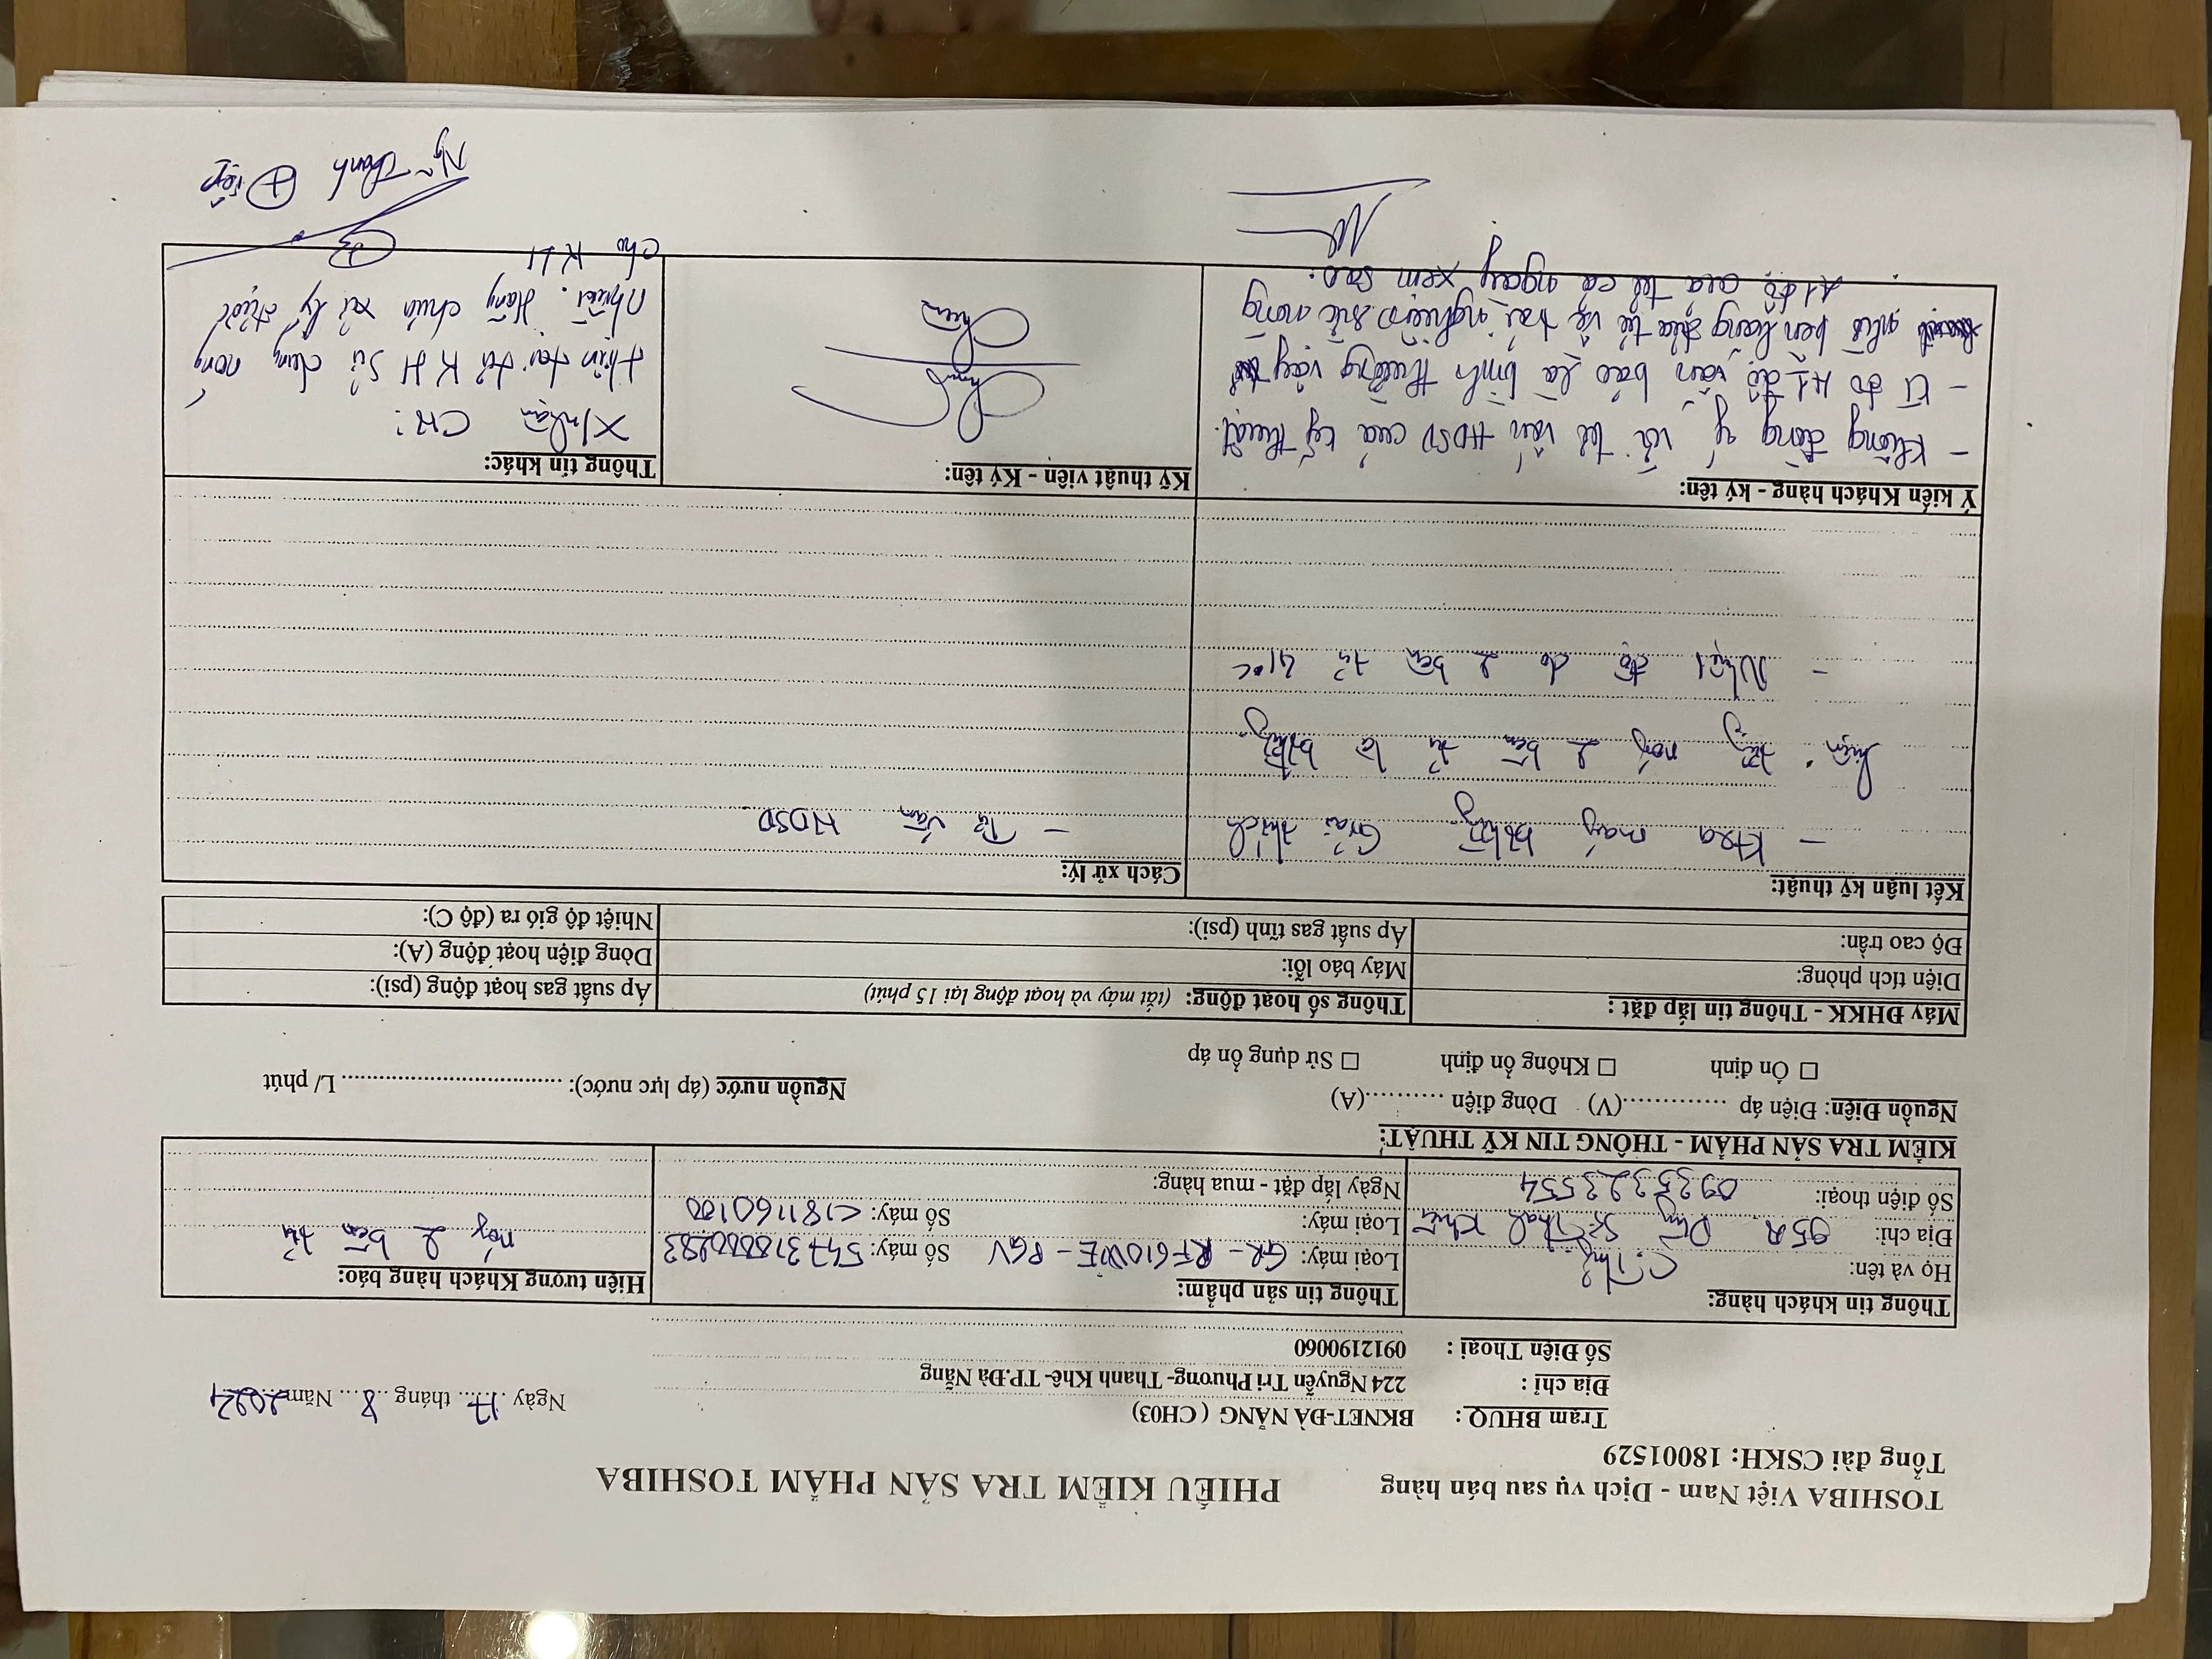 TOSHIBA Việt Nam - Dịch vụ sau bán hàng
Tổng đài CSKH: 18001529
PHIẾU KIỂM TRA SẢN PHẨM TOSHIBA
Trạm BHUQ: BKNET-ĐÀ NẴNG ( CH03)
Địa chỉ : 224 Nguyễn Tri Phương- Thanh Khê- TP.Đà Nẵng
Số Điện Thoại : 0912190060
Ngày 17 tháng 8 Năm 2024
Thông tin khách hàng:
Họ và tên: C.
Địa chỉ: 95A Dũng Sĩ Thanh Khê
Số điện thoại: 0935323554
Thông tin sản phẩm:
Loại máy: GR-RF610WE-PGV Số máy:
Loại máy: Số máy:
Ngày lắp đặt - mua hàng:
Hiện tượng Khách hàng báo:
nóng 2 bên tủ
KIỂM TRA SẢN PHẨM - THÔNG TIN KỸ THUẬT:
Nguồn Điện: Điện áp ..............(V) Dòng điện ...........(A)
Nguồn nước (áp lực nước): .................................. L/ phút
□ Ổn định □ Không ổn định □ Sử dụng ổn áp
Máy ĐHKK - Thông tin lắp đặt :
Diện tích phòng:
Độ cao trần:
Thông số hoạt động: (tắt máy và hoạt động lại 15 phút)
Máy báo lỗi:
Áp suất gas tĩnh (psi):
Áp suất gas hoạt động (psi):
Dòng điện hoạt động (A):
Nhiệt độ gió ra (độ C):
Kết luận kỹ thuật:
- Ktra máy bthg Giải thích
hiện tg nóng 2 bên tủ là bthg
- Nhiệt độ đo 2 bên tủ 41°C
Cách xử lý:
- Tư vấn HDSD
Ý kiến Khách hàng - ký tên:
- Không đồng ý với tư vấn HDSD của kỹ thuật.
- Tủ đo 41 độ vẫn báo là bình thường vậy
nhờ bên hãng đưa tủ về trải nghiệm sức nóng
41 độ của tủ cả ngày xem sao.
Kỹ thuật viên - Ký tên:
Thông tin khác:
X/nhận CH:
Hiện tại tủ KH sử dụng nóng
nhiều. Hãng chưa xử lý được
cho KH
Ng~ Thanh Điệp